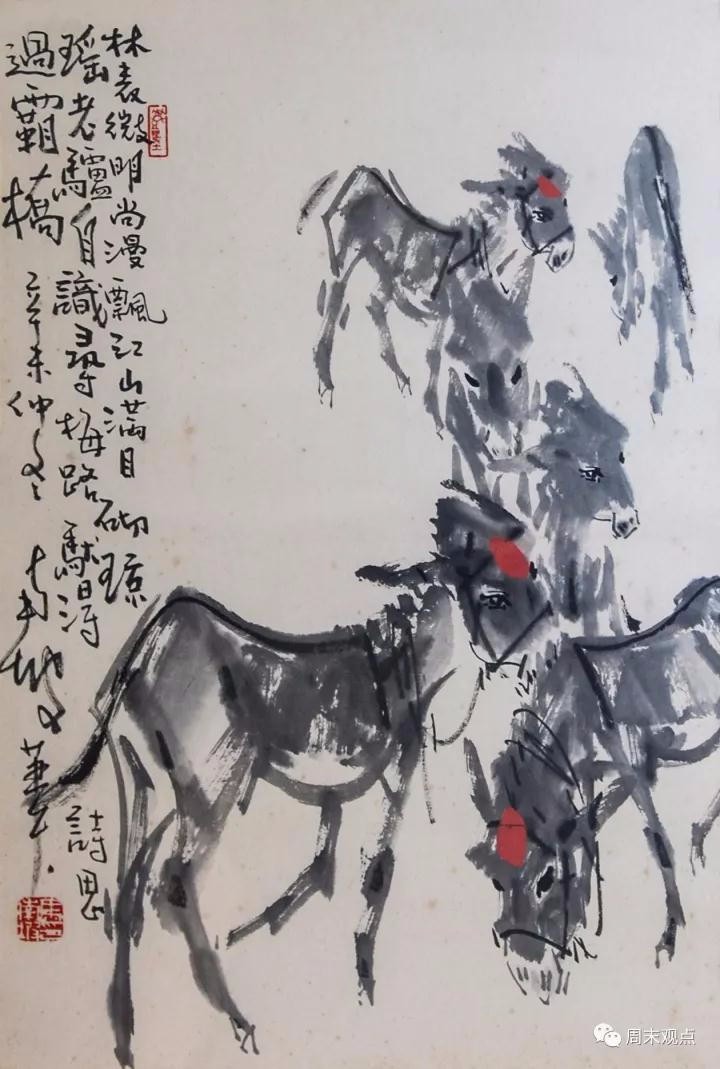 林表微明尚漫飄江山滿目砌瓊
瑶老驢自識尋梅路馱得詩思
過霸橋 辛未仲冬
周末观点